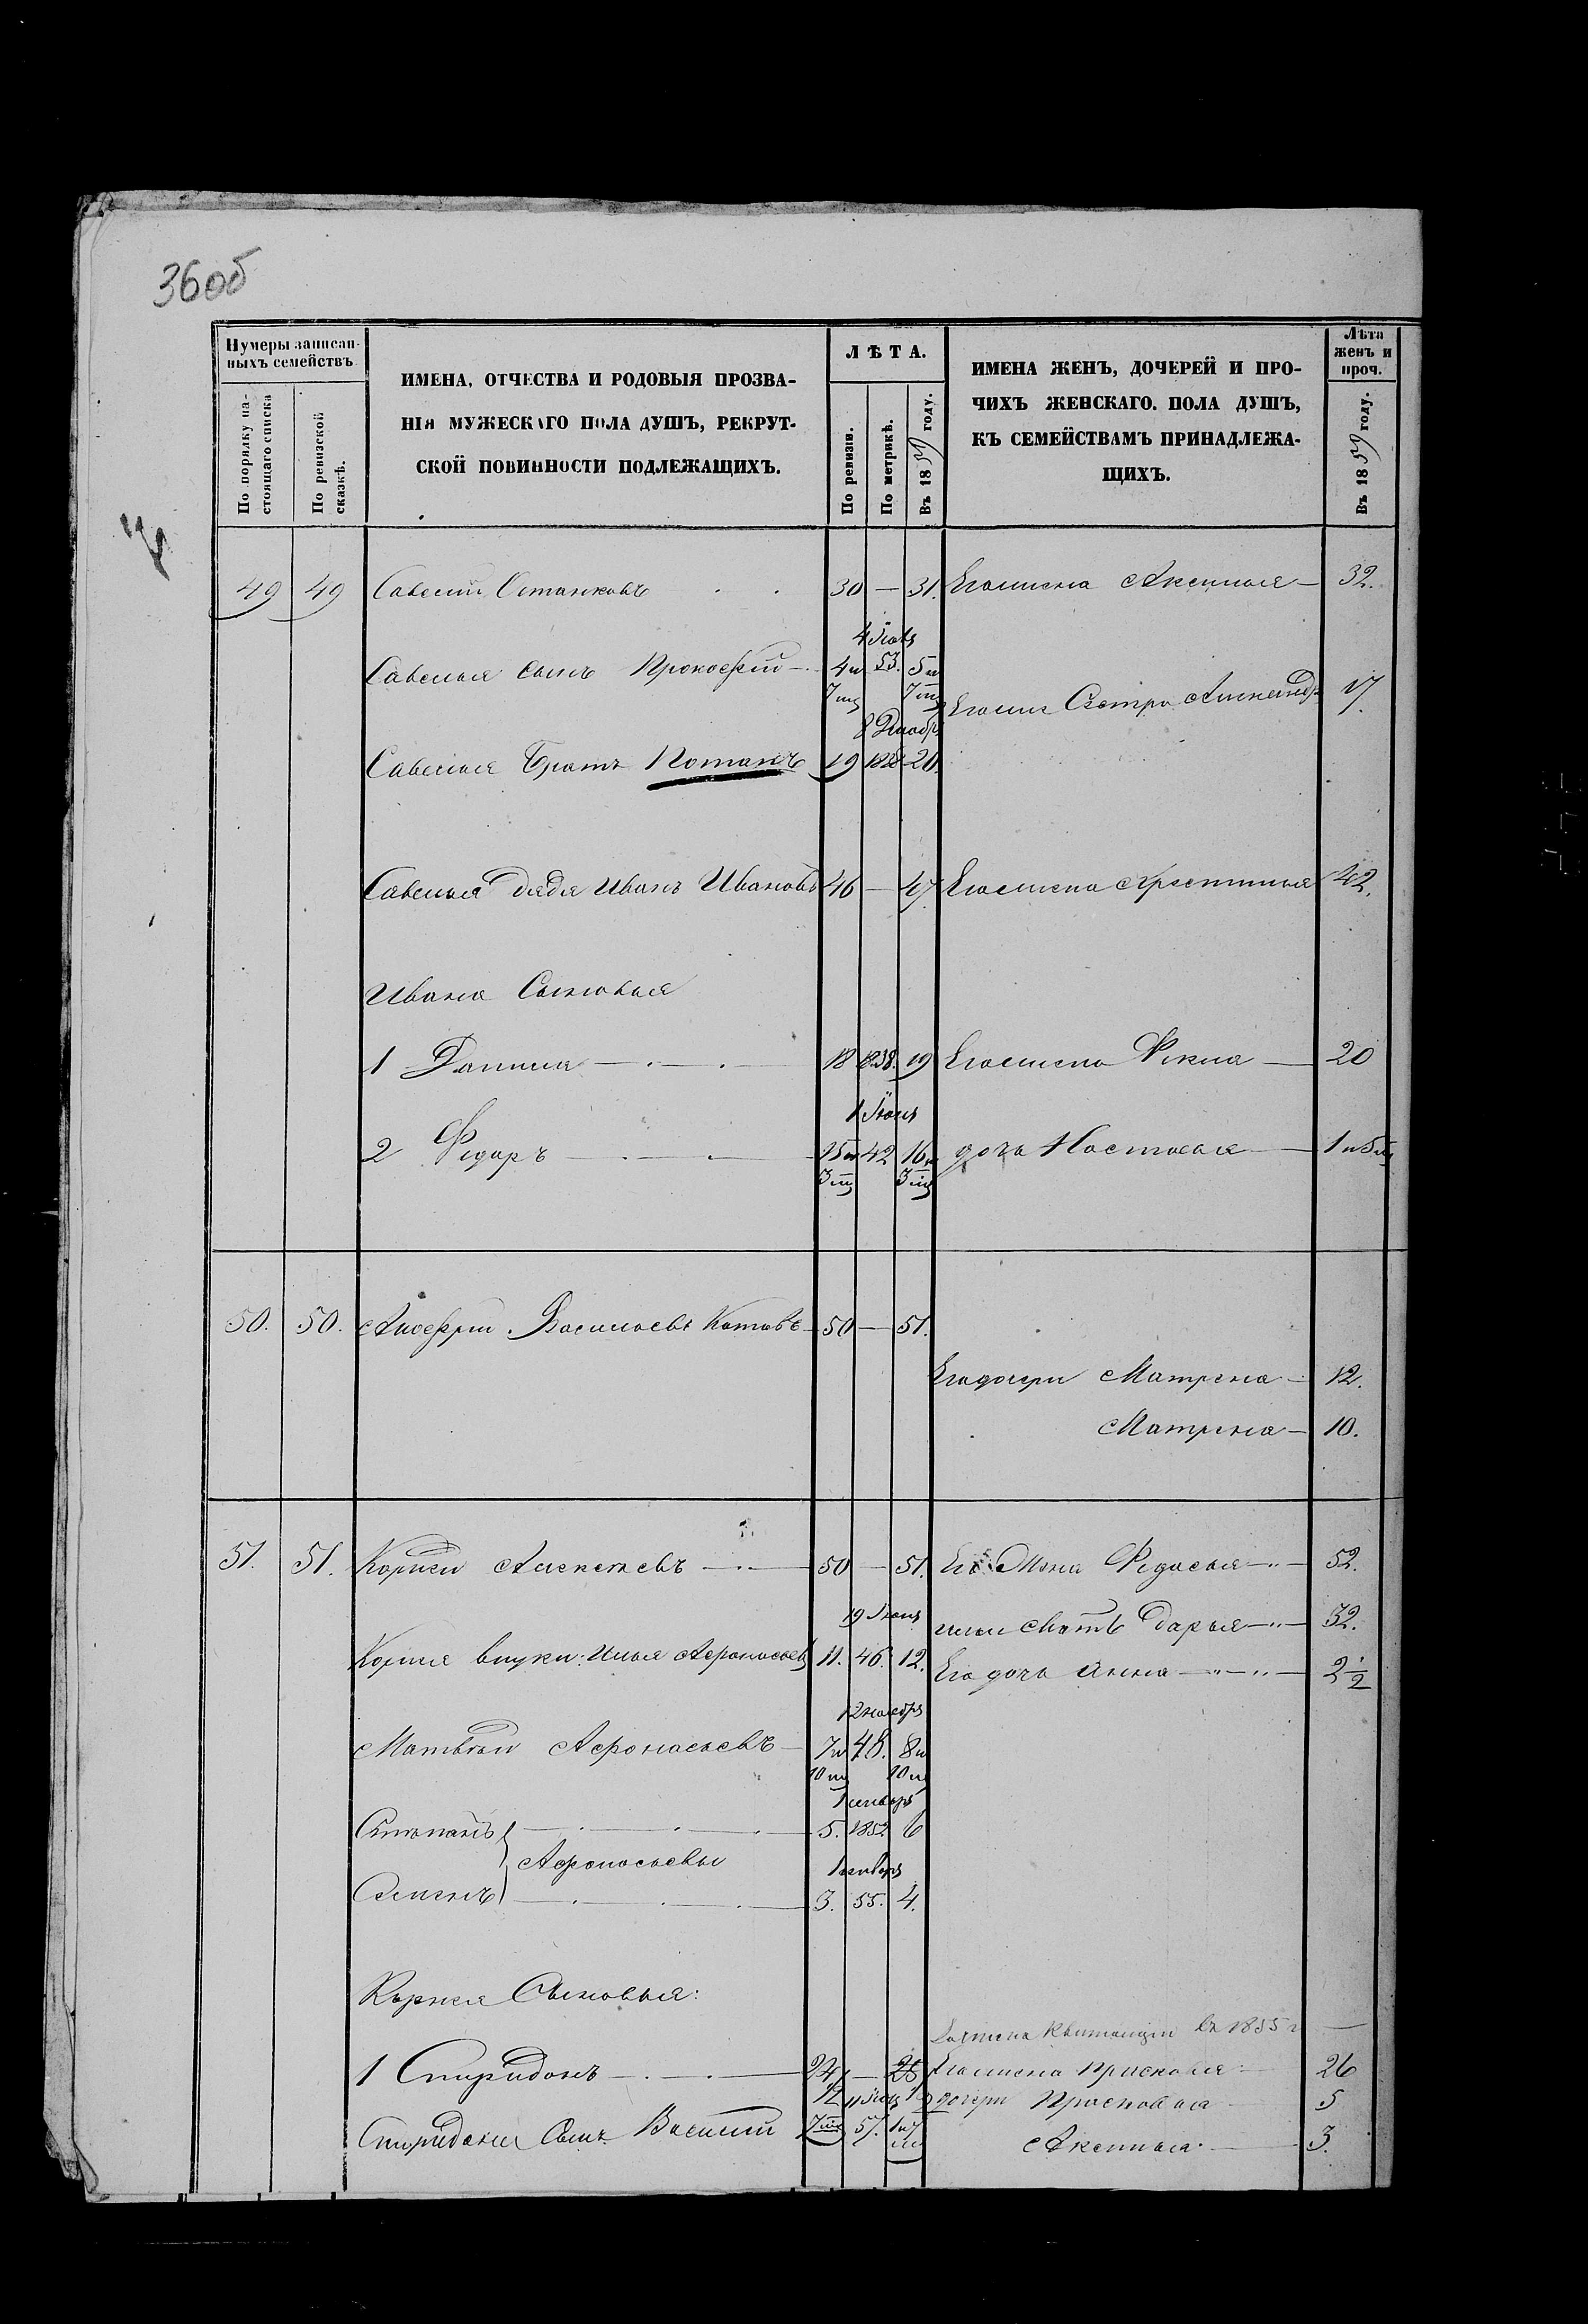 36об
Нумеры записан-
ныхъ семействъ
По порядку на-
стоящаго списка
По ревизской
сказкѣ.
ИМЕНА, ОТЧЕСТВА И РОДОВЫЯ ПРОЗВА-
НІЯ МУЖЕСКАГО ПОЛА ДУШЪ, РЕКРУТ-
СКОЙ ПОВИННОСТИ ПОДЛЕЖАЩИХЪ.
ЛѢТА.
По ревизіи.
По метрикѣ.
Въ 1859 году.
ИМЕНА ЖЕНЪ, ДОЧЕРЕЙ И ПРО-
ЧИХЪ ЖЕНСКАГО. ПОЛА ДУШЪ,
КЪ СЕМЕЙСТВАМЪ ПРИНАДЛЕЖА-
ЩИХЪ.
Лѣта
женъ и
проч.
Въ 1859 году.
49 49 Савелий Останковъ 30 — 31. Его жена Аксинья — 32.
Савелья сынъ Прокофій — 4 и 53. 5 и
7 мц 7 мц
Его Сестра 17.
Савелья Братъ Потапъ 19 1838 20.
Савелья дядя Иванъ Ивановъ 46 — 47 Его жена Христинья 42.
Ивана Сыновья
1 Данила — 18 1838. 19 Его жена Фекла — 20
2 Федоръ — 15 и 42 16 и дочь Настасья — 1 и 5 мц
3 мц 3 мц
50. 50. Васильевъ Котовъ — 50 — 51.
Его дочери Матрена — 12.
Матрена — 10.
51. 51. Корней Алексеевъ — 50 — 51. Его Жена Федосья — 52.
19
Мать Дарья — 32.
Корнея внуки: Илья Афонасьевъ 11. 46. 12.
Его дочь Анна — 2 1/2
12 ноября
Матвѣй Афонасьевъ — 7 и 48. 8 и
10 мц 10 мц
Степанъ — 5. 1852 6
Афонасьевы
Семенъ — 3. 55. 4.
Корнея Сыновья:
квитанция въ 1855 г —
1 Спиридонъ — 24 — 25 Его жена Прасковья 26
дочери Прасковья 5
Спиридона Сынъ Василій 7 мц 57. 1 и 7
Аксинья — 3.